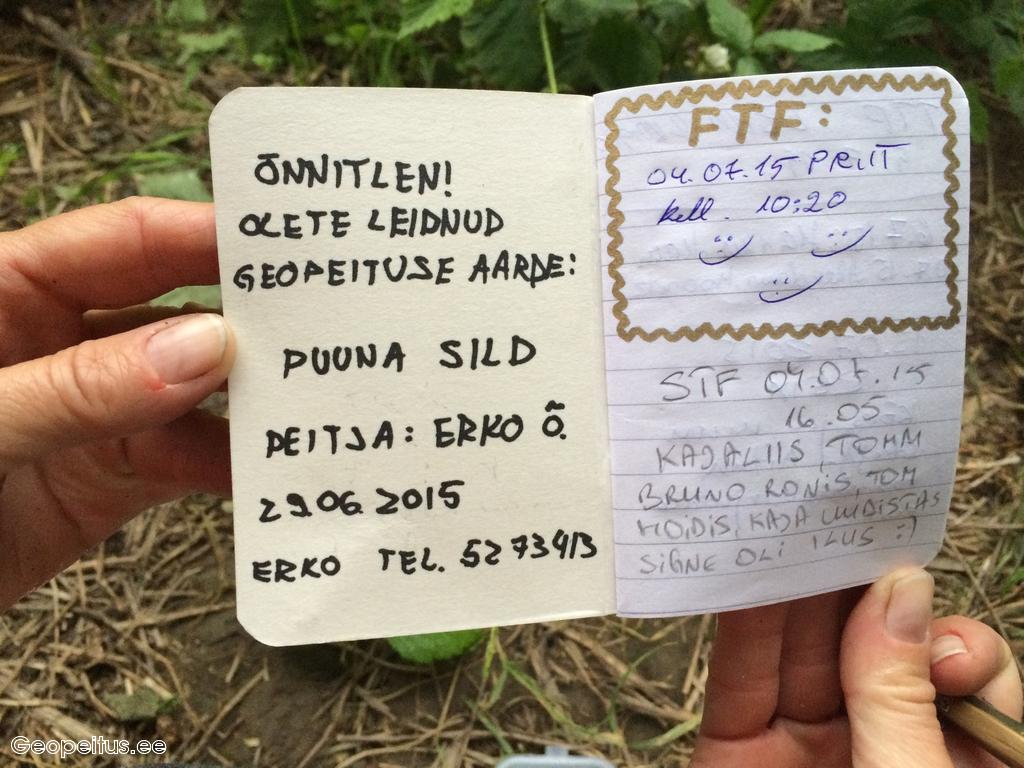 ÕNNITLEN!
OLETE LEIDNUD
GEOPEITUSE AARDE:
PUUNA SILD
PEITJA: ERKO Õ.
29.06.2015
ERKO TEL. 5273413
FTF:
04.07.15 PRIIT
kell. 10:20
STF 04.07.15
16.05
KAJALIIS, TOMM
BRUNO RONIS, TOM
HOIDIS, KAJA UUDISTAS
SIGNE OLI ILUS :)
Geopeitus.ee